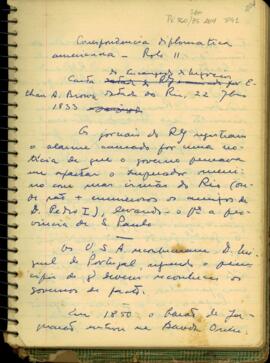 Correspondência diplomatica
americana – Rolo II.
Carta do Encarregado de Negocios
Ethan A. Brown datada do Rio, 22
1833
Os jornais do RJ registram
o alarme causado por uma no-
ticia de que o governo pensava
em afastar o Imperador meni-
no com suas irmãs do Rio (on-
de são numerosos os amigos de
D. Pedro I), levando-o pª a pro-
vincia de S. Paulo
Os U.S.A. reconheceram D. Mi-
guel de Portugal, segundo o prin-
cipio de q devem reconhecer os
governos de facto.
Em 1850 o Barão de Ja-
entrou na Banda Orien.